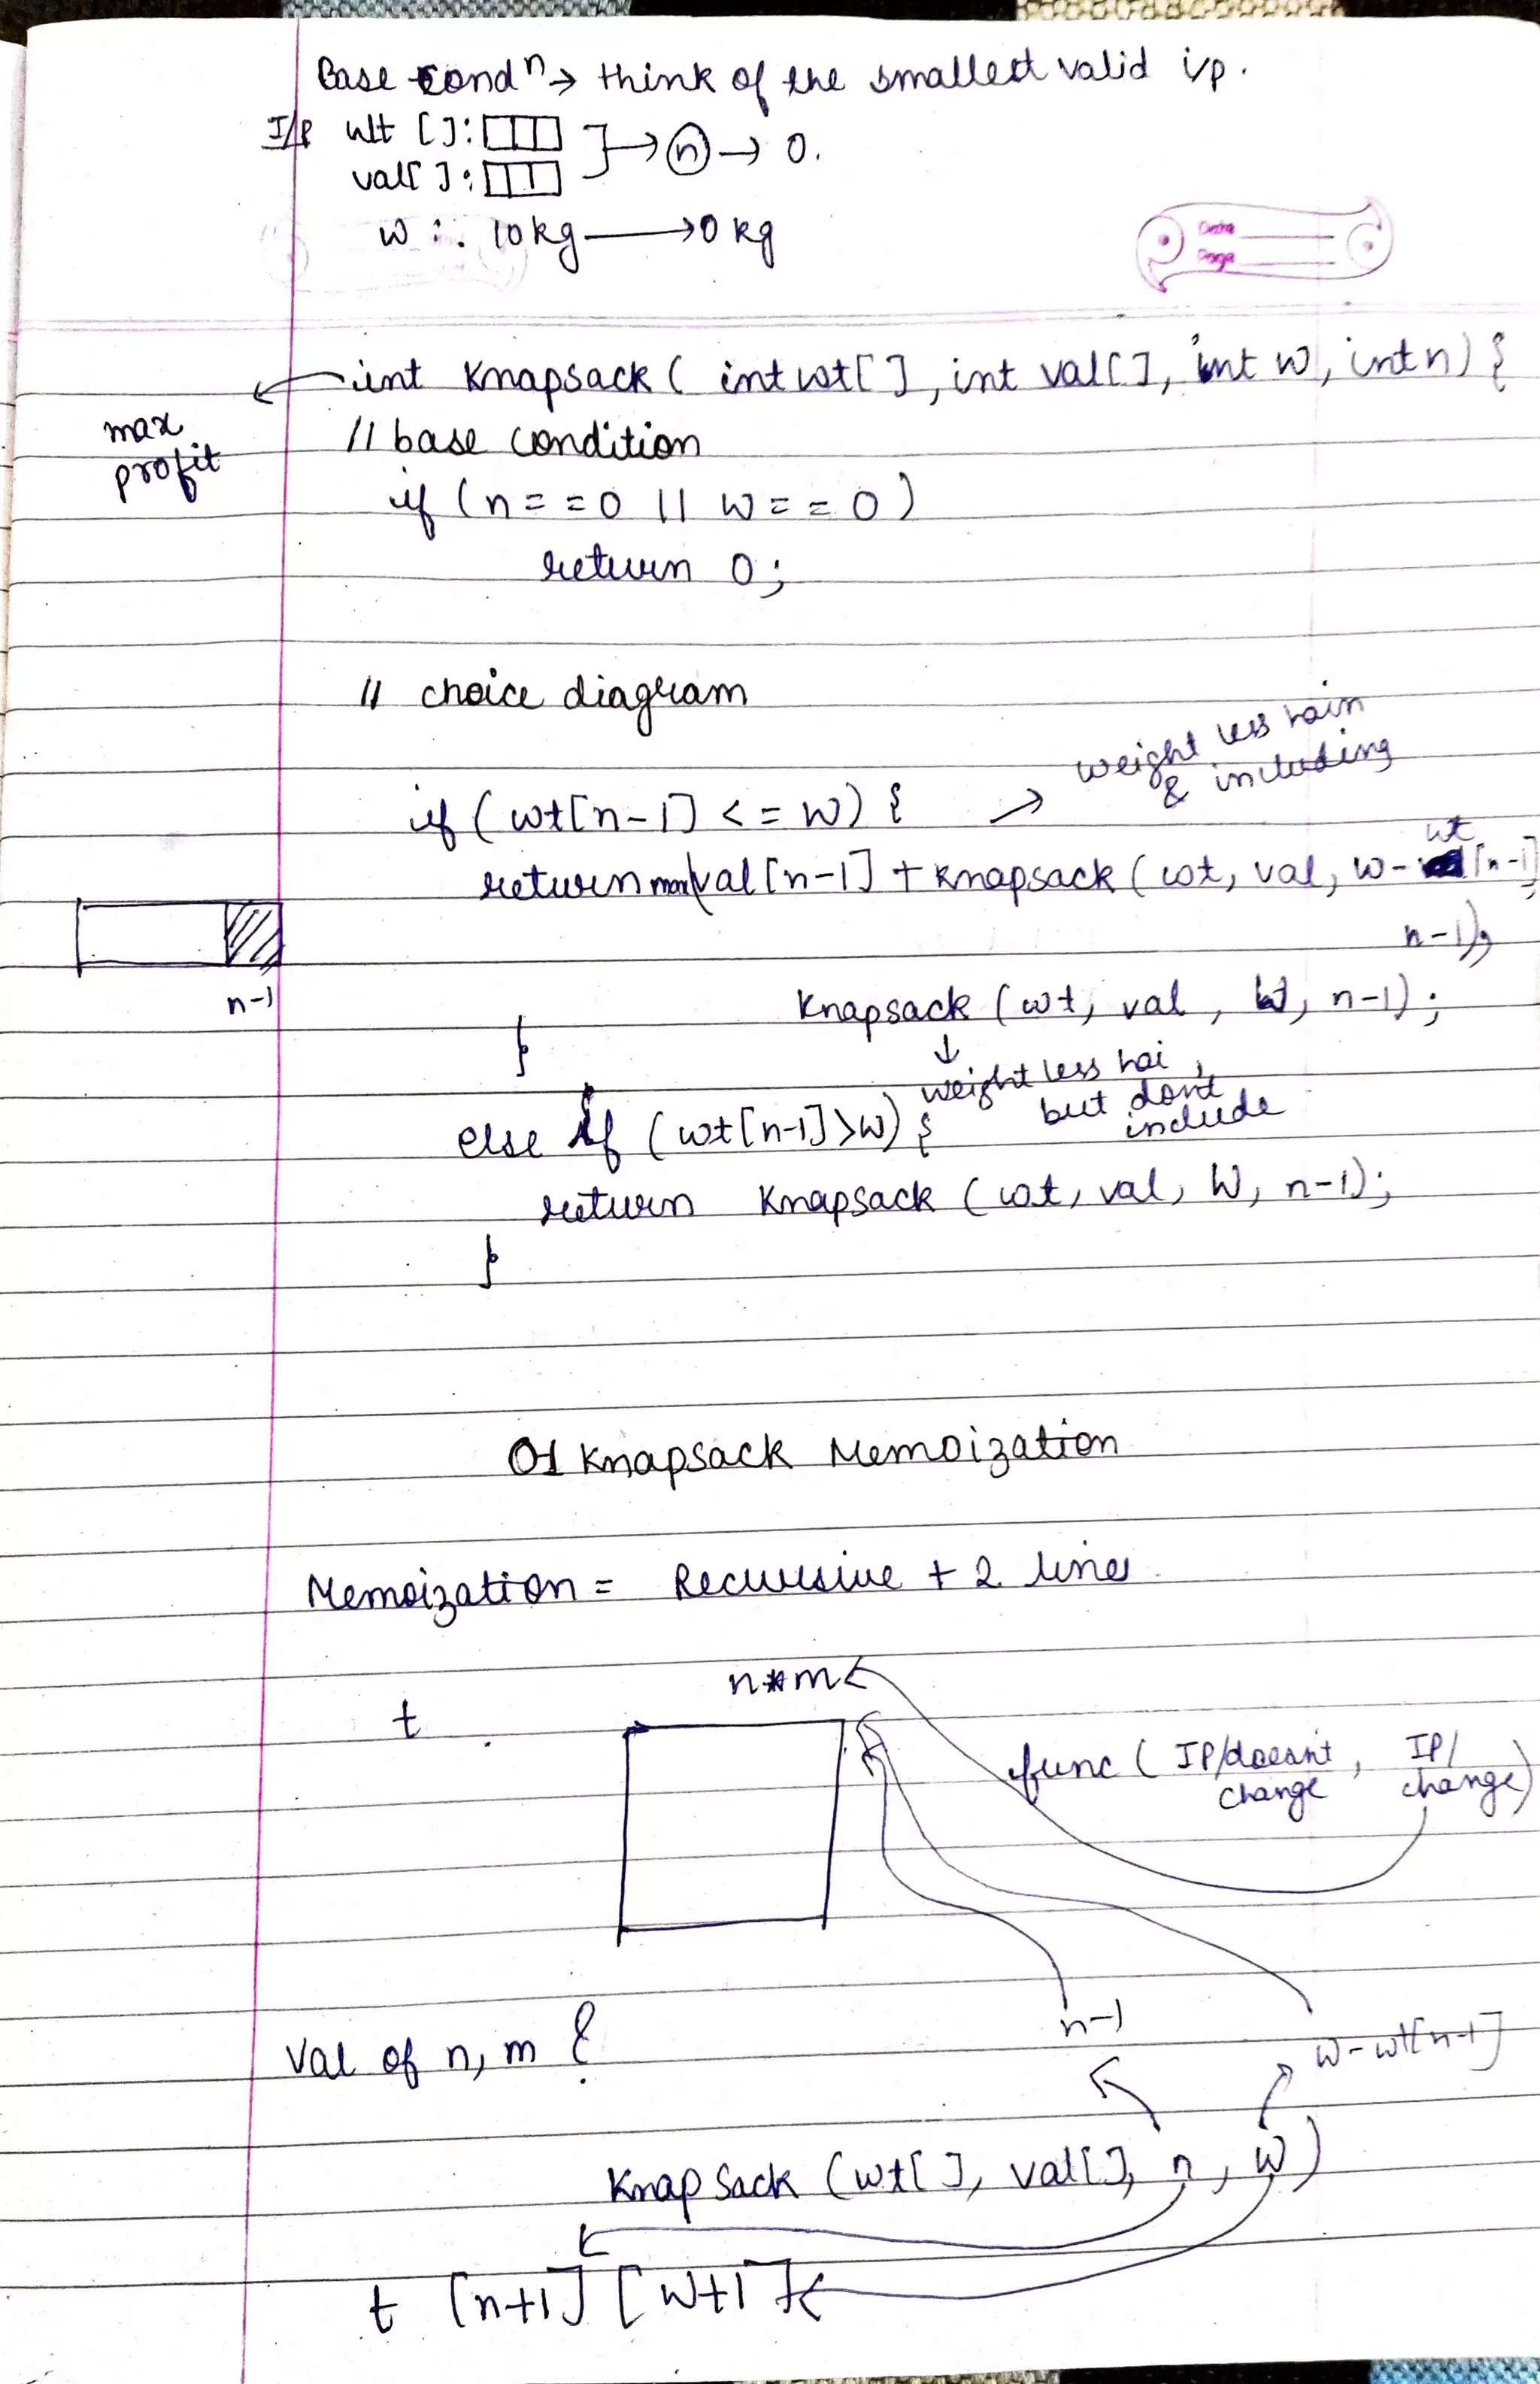 Base condⁿ → think of the smallest valid i/p.
I/P wt [ ]:
val[ ]: → n → 0.
W : 10 kg → 0 kg
Date
Page
int Knapsack ( int wt[ ], int val[ ], int W, int n) {
max profit
// base condition
if (n = = 0 || W = = 0)
return 0;
// choice diagram
weight less hain
& including
if (wt[n-1] < = W) { →
return max(val[n-1] + Knapsack (wt, val, W- wt[n-1],
n-1),
n-1
Knapsack (wt, val, W, n-1);
}
↓
weight less hai,
but dont
include
else if (wt[n-1]>W) {
return Knapsack (wt, val, W, n-1);
}
01 Knapsack Memoization
Memoization = Recursive + 2 lines
n*m
t
func ( IP/doesnt change, IP/ change)
n-1
W-wt[n-1]
Val of n, m ?
Knap Sack (wt[ ], val[ ], n, W)
t [n+1] [W+1]